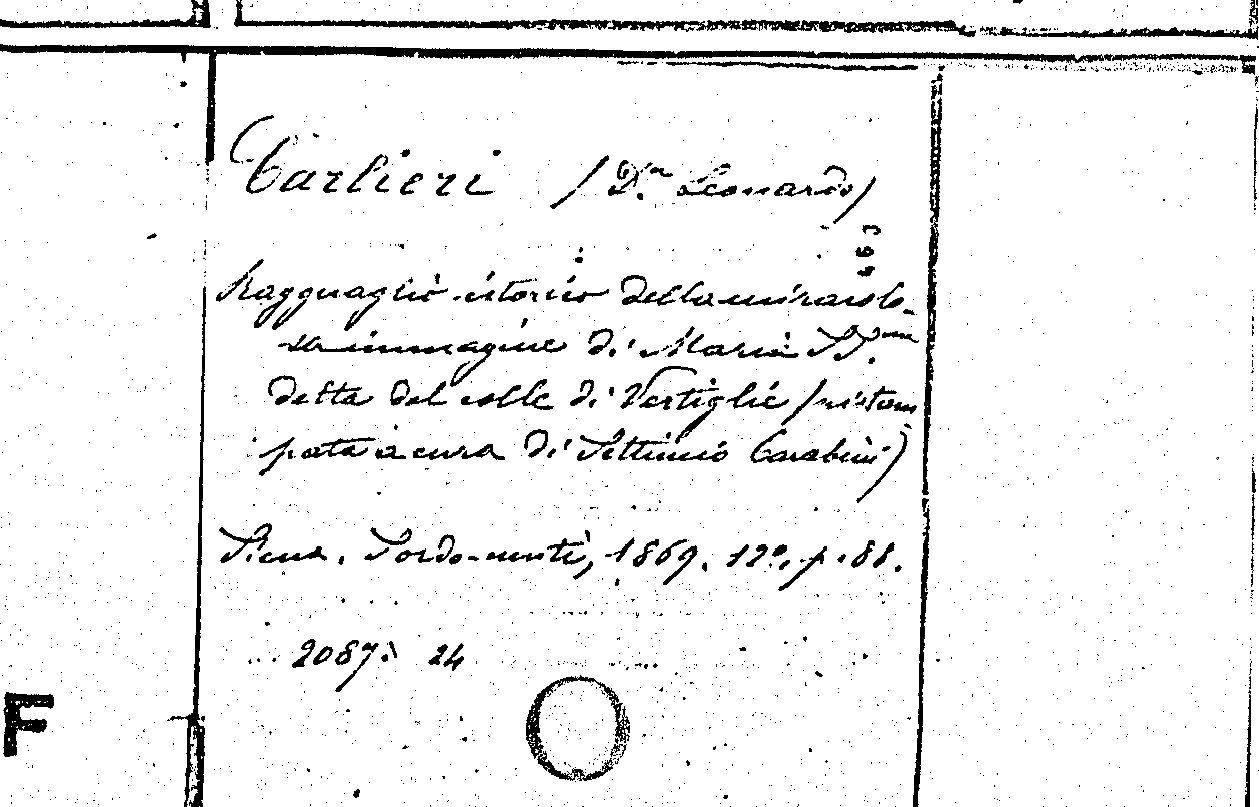 Carlieri /D.r Leonardo/
463
Ragguaglio istorico della miracolo-
sa immagine di Maria SS.ma
detta del colle di Vertighe /ristam
pata a cura di Settimio Carabini)
Siena. Sordo-muti, 1869. 12º. p. 88.
2087. 24
F